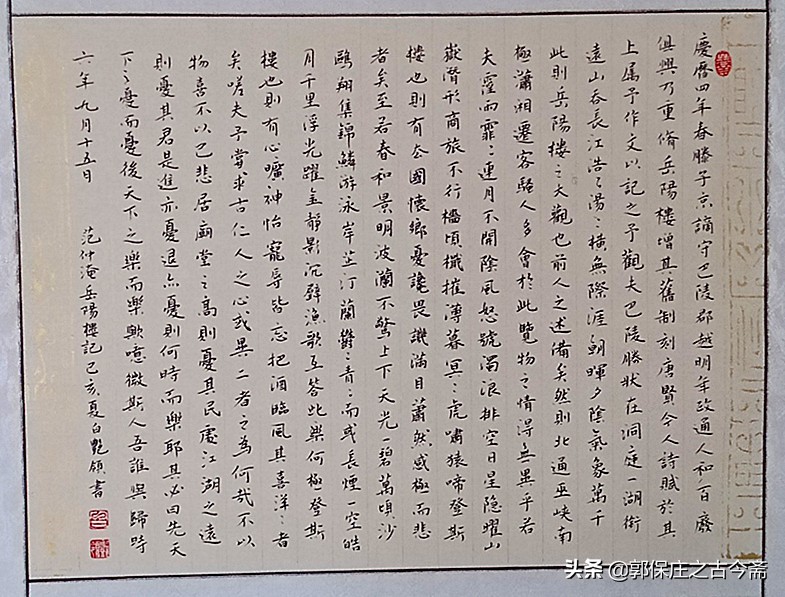 慶曆四年春滕子京謫守巴陵郡越明年政通人和百廢
俱興乃重脩岳陽樓增其舊制刻唐賢今人詩賦於其
上属予作文以記之予觀夫巴陵勝狀在洞庭一湖銜
遠山吞長江浩々湯々橫無際涯朝暉夕陰氣象萬千
此則岳陽樓之大觀也前人之述備矣然則北通巫峽南
極瀟湘遷客騷人多會於此覽物之情得無異乎若
夫霪雨霏々連月不開陰風怒號濁浪排空日星隐曜山
嶽潛形商旅不行檣傾檝摧薄暮冥々虎嘯猿啼登斯
樓也則有去國懷鄉憂讒畏譏滿目蕭然感極而悲
者矣至若春和景明波瀾不驚上下天光一碧萬頃沙
鷗翔集錦鱗游泳岸芷汀蘭鬱々青々而或長煙一空皓
月千里浮光躍金静影沉璧漁歌互答此樂何極登斯
樓也則有心曠神怡寵辱皆忘把酒臨風其喜洋々者
矣嗟夫予嘗求古仁人之心或異二者之為何哉不以
物喜不以己悲居廟堂之高則憂其民處江湖之遠
則憂其君是進亦憂退亦憂則何時而樂耶其必曰先天
下之憂而憂後天下之樂而樂歟噫微斯人吾誰與歸時
六年九月十五日 范仲淹岳陽樓記己亥夏白艷領書
头条 @郭保庄之古今斋